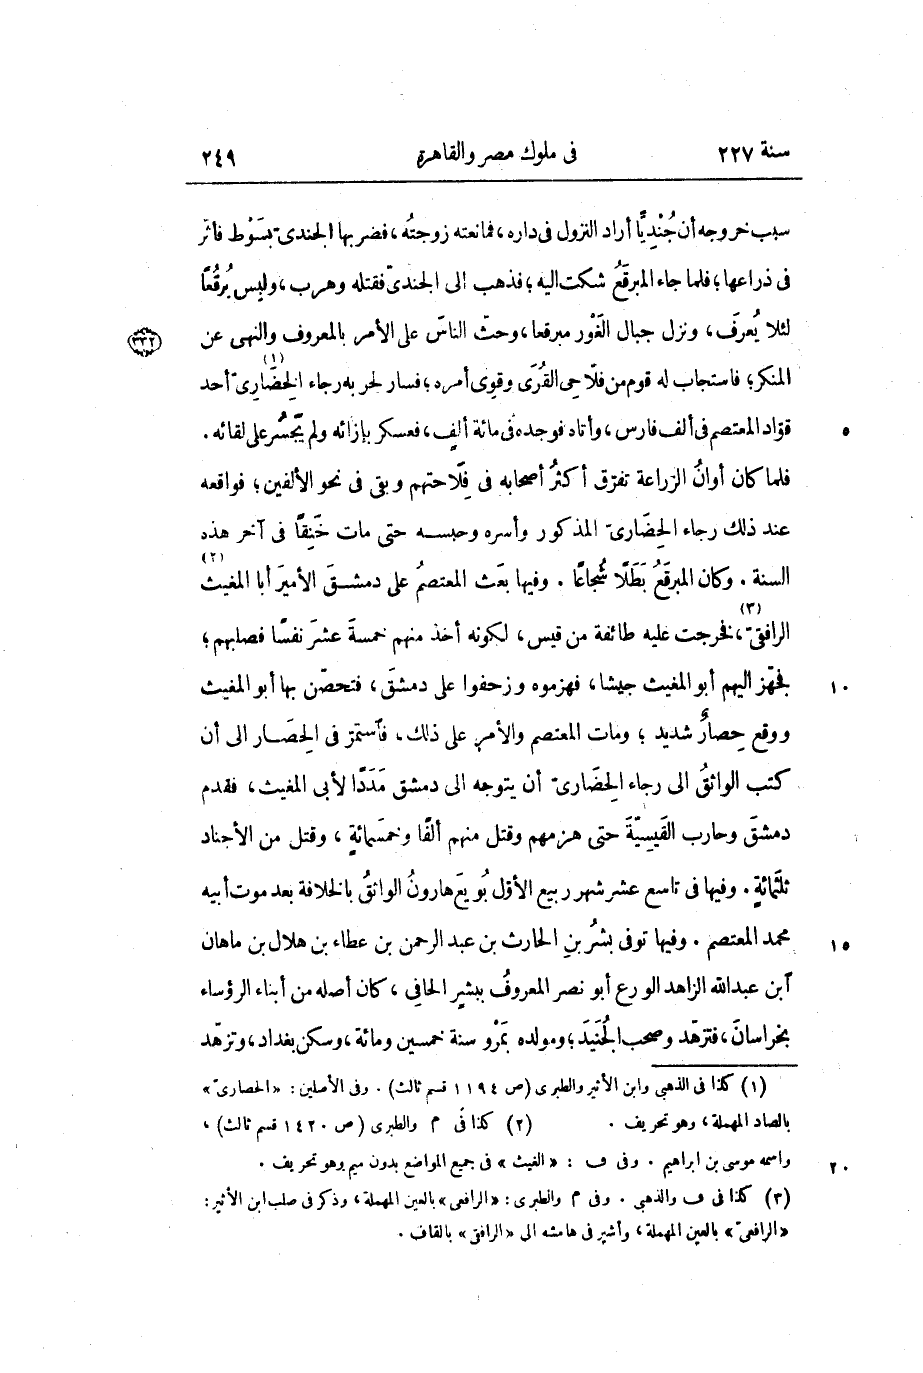 سنة ٢٢٧ فى ملوك مصر والقاهرة ٢٤٩
سبب خروجه أن جُنْدِيًّا أراد النزول فى داره، فمانعته زوجتُه، فضربها الجندىّ بسَوْط فأثّر
فى ذراعها؛ فلما جاء المبرقَعُ شكت اليه؛ فذهب الى الجندىّ فقتله وهرب، ولبِس بُرقُعًا
لئلا يُعرفَ، ونزل جبال الغَوْر مبرقعا، وحثّ الناسَ على الأمر بالمعروف والنهى عن
٣٣٢
المنكر؛ فاستجاب له قوم من فلّاحى القُرَى وقوِى أمره؛ فسار لحربه رجاء الحِضَارىّ (١) أحد
قوّاد المعتصم فى ألف فارس، وأتاه فوجده فى مائة ألفٍ، فعسكر بإزائه ولم يَجْسُر على لقائه. ٥
فلما كان أوانُ الزراعة تفرّق أكثرُ أصحابه فى فِلَاحتهم وبقى فى نحو الألفين؛ فواقعه
عند ذلك رجاء الحِضَارىّ المذكور وأسره وحبسه حتى مات خَنِقًا فى آخر هذه
السنة. وكان المبرقَعُ بَطَلًا شُجاعًا. وفيها بعَث المعتصمُ على دمشقَ الأميرَ أبا المغيث (٢)
الرافقىّ (٣)، فخرجت عليه طائفة من قيس، لكونه أخذ منهم خمسةَ عشَرَ نفسًا فصلبهم؛
فجهّز اليهم أبو المغيث جيشا، فهزموه وزحفوا على دمشقَ، فتحصّن بها أبو المغيث ١٠
ووقع حِصارٌ شديد؛ ومات المعتصم والأمر على ذلك. فآستمرّ فى الحِصَار الى أن
كتب الواثقُ الى رجاء الحِضَارىّ أن يتوجه الى دمشق مَدَدًا لأبى المغيث، فقدم
دمشقَ وحارب القَيسِيّةَ حتى هزمهم وقتل منهم ألفًا وخمسَمائةٍ، وقتل من الأجناد
ثلثَمائةٍ. وفيها فى تاسع عشر شهر ربيع الأوّل بُويعَ هارونُ الواثقُ بالخلافة بعد موت أبيه
محمد المعتصم. وفيها توفى بشْرُ بن الحارث بن عبد الرحمن بن عطاء بن هلال بن ماهان ١٥
آبن عبدالله الزاهد الورع أبو نصر المعروفُ ببشرٍ الحافى، كان أصله من أبناء الرؤساء
بخراسانَ، فتزهّد وصحب الجُنَيدَ؛ ومولده بَمَرْو سنة خمسين ومائة، وسكن بغداد، وتزهّد
(١) كذا فى الذهبى وابن الأثير والطبرى (ص ١١٩٤ قسم ثالث). وفى الأصلين: «الحصارىّ»
بالصاد المهملة، وهو تحريف. (٢) كذا فى م والطبرى (ص ١٤٢٠ قسم ثالث)،
واسمه موسى بن ابراهيم. وفى ف: «الغيث» فى جميع المواضع بدون ميم وهو تحريف. ٢٠
(٣) كذا فى ف والذهبى. وفى م والطبرى: «الرافعى» بالعين المهملة، وذكر فى صلب ابن الأثير:
«الرافعىّ» بالعين المهملة، وأشير فى هامشه الى «الرافقى» بالقاف.